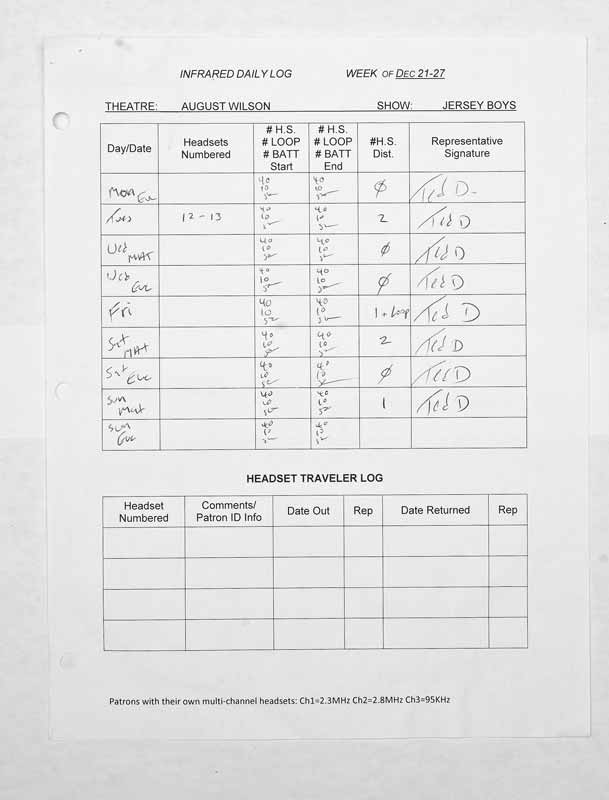 INFRARED DAILY LOG WEEK OF DEC 21-27
THEATRE: AUGUST WILSON SHOW: JERSEY BOYS
Day/Date Headsets Numbered # H.S. # LOOP # BATT Start # H.S. # LOOP # BATT End #H.S. Dist. Representative Signature
Mon Eve 40 10 52 40 10 52 Ø Ted D.
Tues 12-13 40 10 52 40 10 52 2 Ted D
Wed MAT 40 10 52 40 10 52 Ø Ted D
Wed Eve 40 10 52 40 10 52 Ø Ted D
Fri 40 10 52 40 10 52 1 + Loop Ted D
Sat MAT 40 10 52 40 10 52 2 Ted D
Sat Eve 40 10 52 40 10 Ø Ted D
Sun Mat 40 10 52 40 10 52 1 Ted D
Sun Eve 40 10 52 40 10 52
HEADSET TRAVELER LOG
Headset Numbered Comments/ Patron ID Info Date Out Rep Date Returned Rep
Patrons with their own multi-channel headsets: Ch1=2.3MHz Ch2=2.8MHz Ch3=95KHz